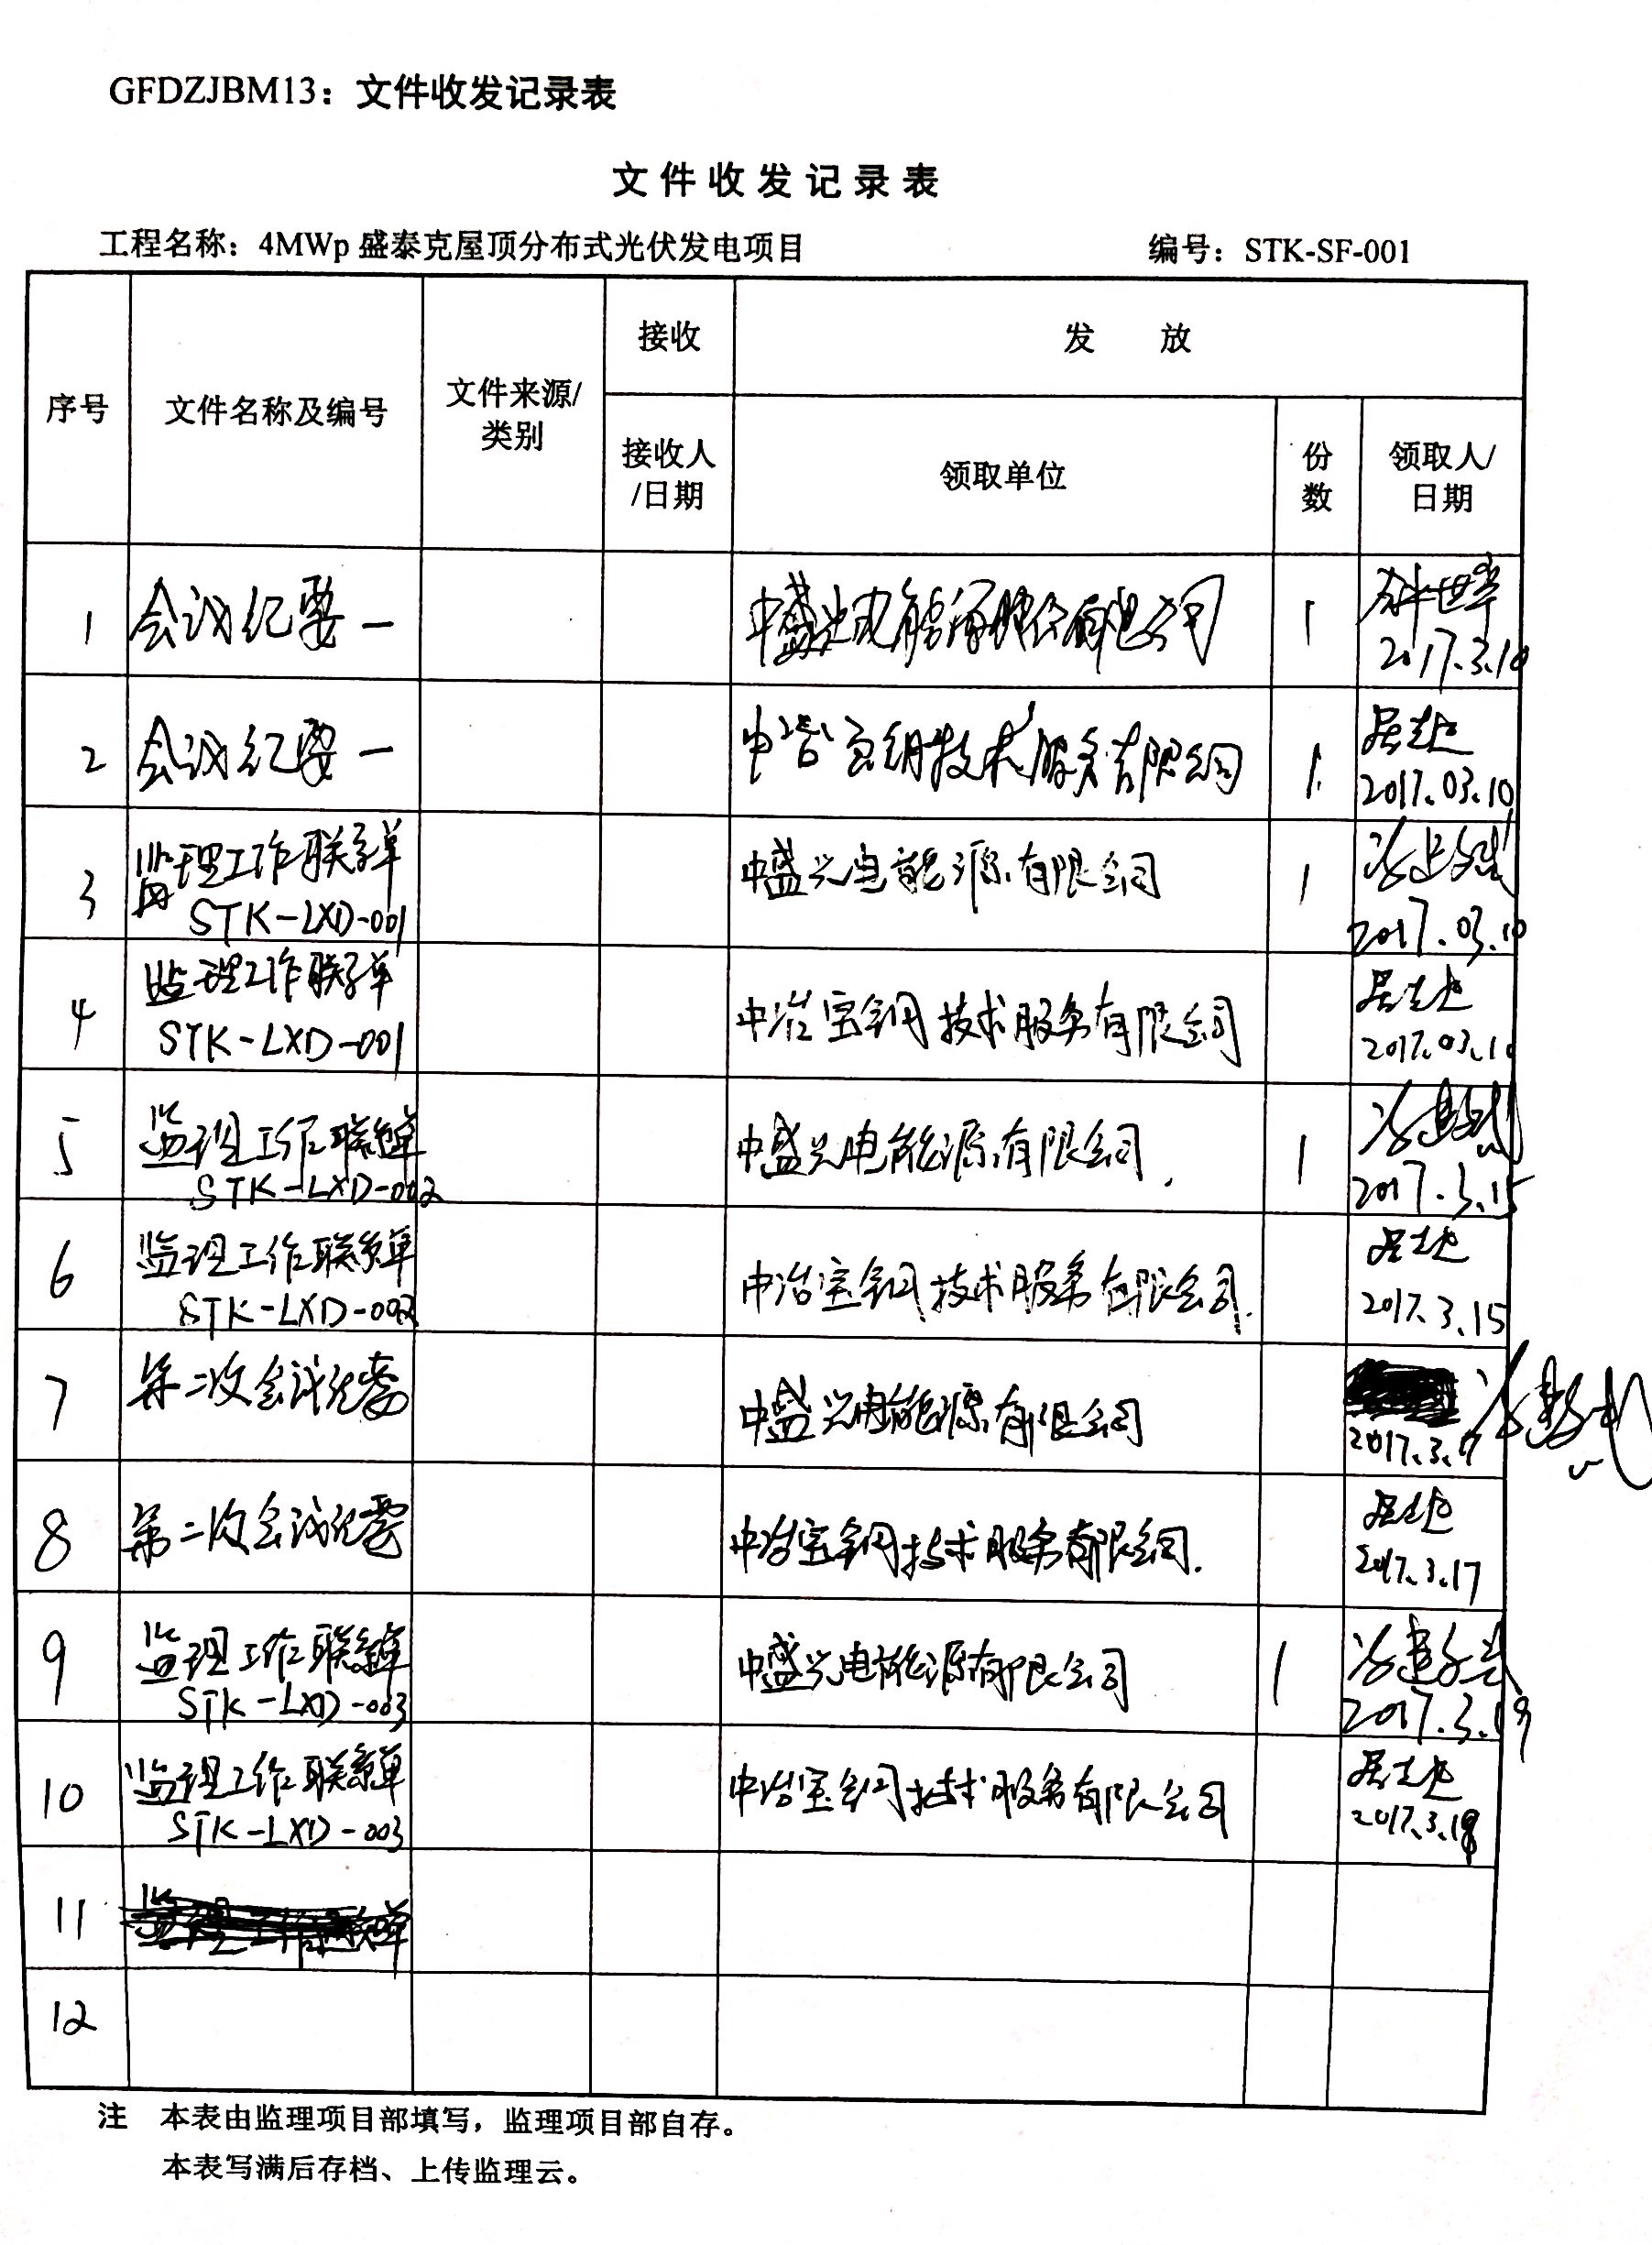 GFDZJBM13：文件收发记录表
文件收发记录表
工程名称：4MWp 盛泰克屋顶分布式光伏发电项目 编号：STK-SF-001
序号 文件名称及编号 文件来源/类别 接收 发 放
接收人/日期 领取单位 份数 领取人/日期
1 会议纪要一 1
2017.3.10
2 会议纪要一 中冶宝钢技术服务有限公司 1
2017.03.10
3 监理工作联系单 中盛兴电能源有限公司 1
STK-LXD-001 2017.03.10
4 监理工作联系单 中冶宝钢技术服务有限公司
STK-LXD-001 2017.03.10
5 监理工作联系单 中盛兴电能源有限公司 1
STK-LXD-002 2017.3.15
6 监理工作联系单 中冶宝钢技术服务有限公司
STK-LXD-002 2017.3.15
7 第二次会议纪要 中盛兴电能源有限公司
2017.3.17
8 第二次会议纪要 中冶宝钢技术服务有限公司
2017.3.17
9 监理工作联系单 中盛兴电能源有限公司 1
STK-LXD-003 2017.3.19
10 监理工作联系单 中冶宝钢技术服务有限公司
STK-LXD-003
11 监理工作联系单
12
注 本表由监理项目部填写，监理项目部自存。
本表写满后存档、上传监理云。